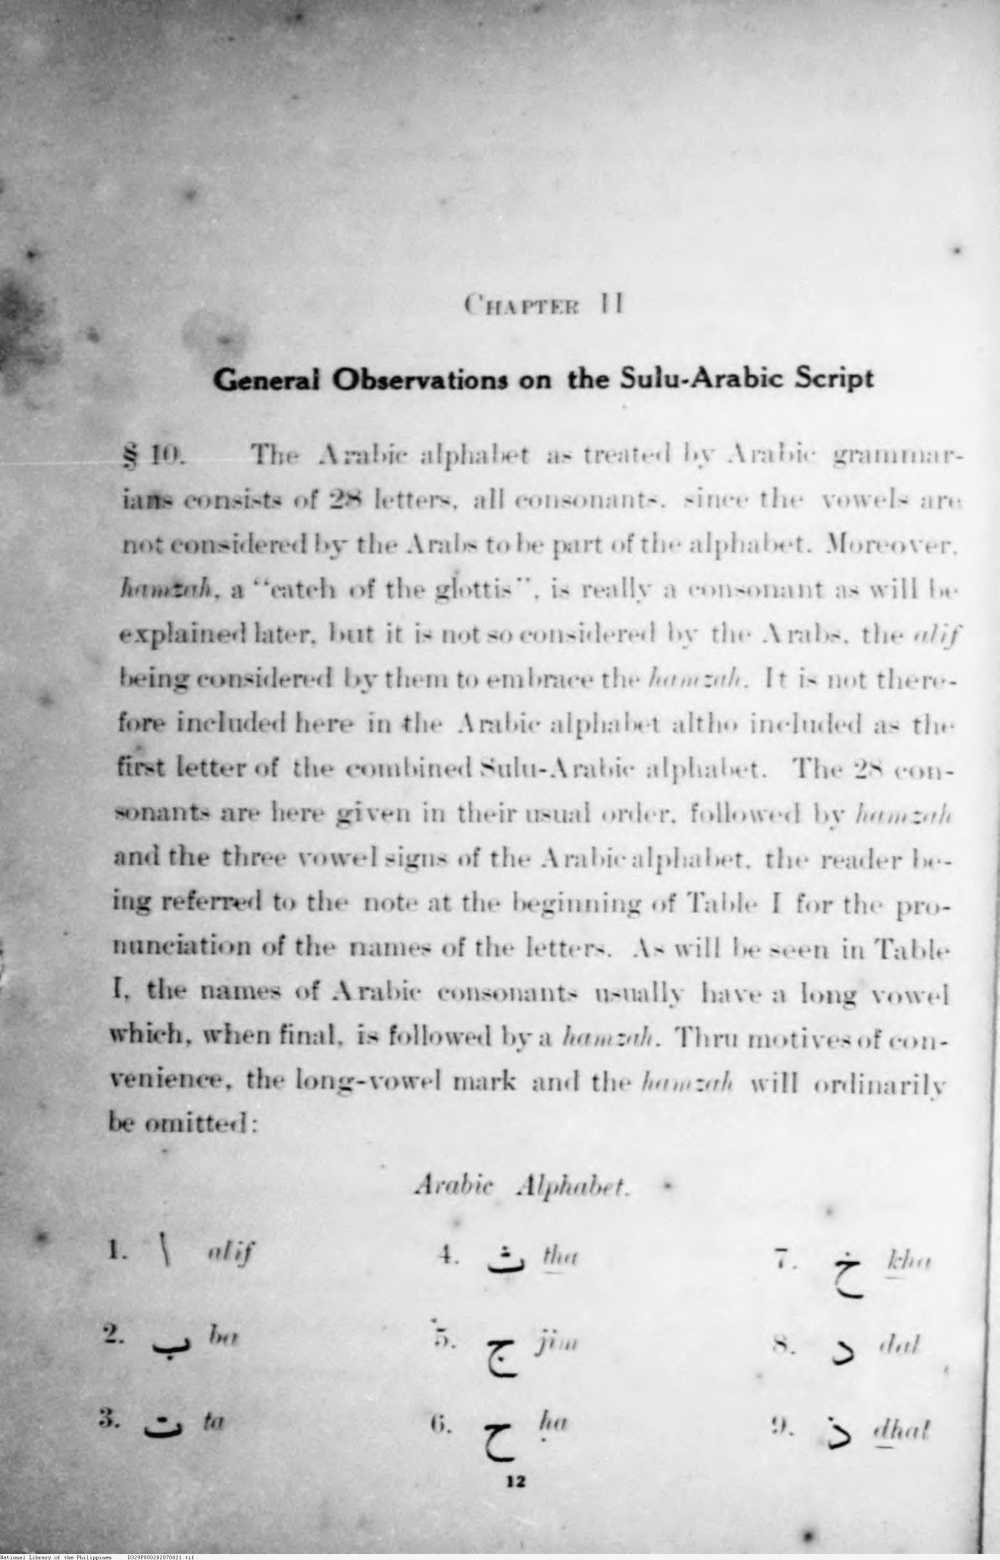 CHAPTER II
General Observations on the Sulu-Arabic Script
§ 10. The Arabic alphabet as treated by Arabic grammar-
ians consists of 28 letters, all consonants, since the vowels are
not considered by the Arabs to be part of the alphabet. Moreover,
hamzah, a “catch of the glottis”, is really a consonant as will be
explained later, but it is not so considered by the Arabs, the alif
being considered by them to embrace the hamzah. It is not there-
fore included here in the Arabic alphabet altho included as the
first letter of the combined Sulu-Arabic alphabet. The 28 con-
sonants are here given in their usual order, followed by hamzah
and the three vowel signs of the Arabic alphabet, the reader be-
ing referred to the note at the beginning of Table I for the pro-
nunciation of the names of the letters. As will be seen in Table
I, the names of Arabic consonants usually have a long vowel
which, when final, is followed by a hamzah. Thru motives of con-
venience, the long-vowel mark and the hamzah will ordinarily
be omitted:
Arabic Alphabet.
1. ا alif 4. ث tha 7. خ kha
2. ب ba 5. ج jim 8. د dal
3. ت ta 6. ح ḥa 9. ذ dhal
12
National Library of the Philippines